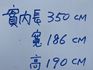 實內長350cm
寬186cm
高190cm